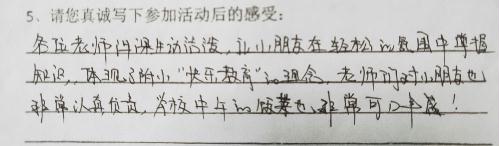 5、请您真诚写下参加活动后的感受：
各位老师的课生动活泼，让小朋友在轻松的氛围中掌握
知识，体现了附小“快乐教育”的理念，老师们对小朋友也
非常认真负责，学校中午的饭菜也非常可口丰盛！